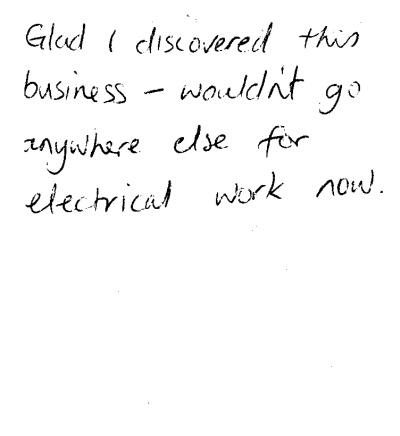 Glad I discovered this
business - wouldn't go
anywhere else for
electrical work now.